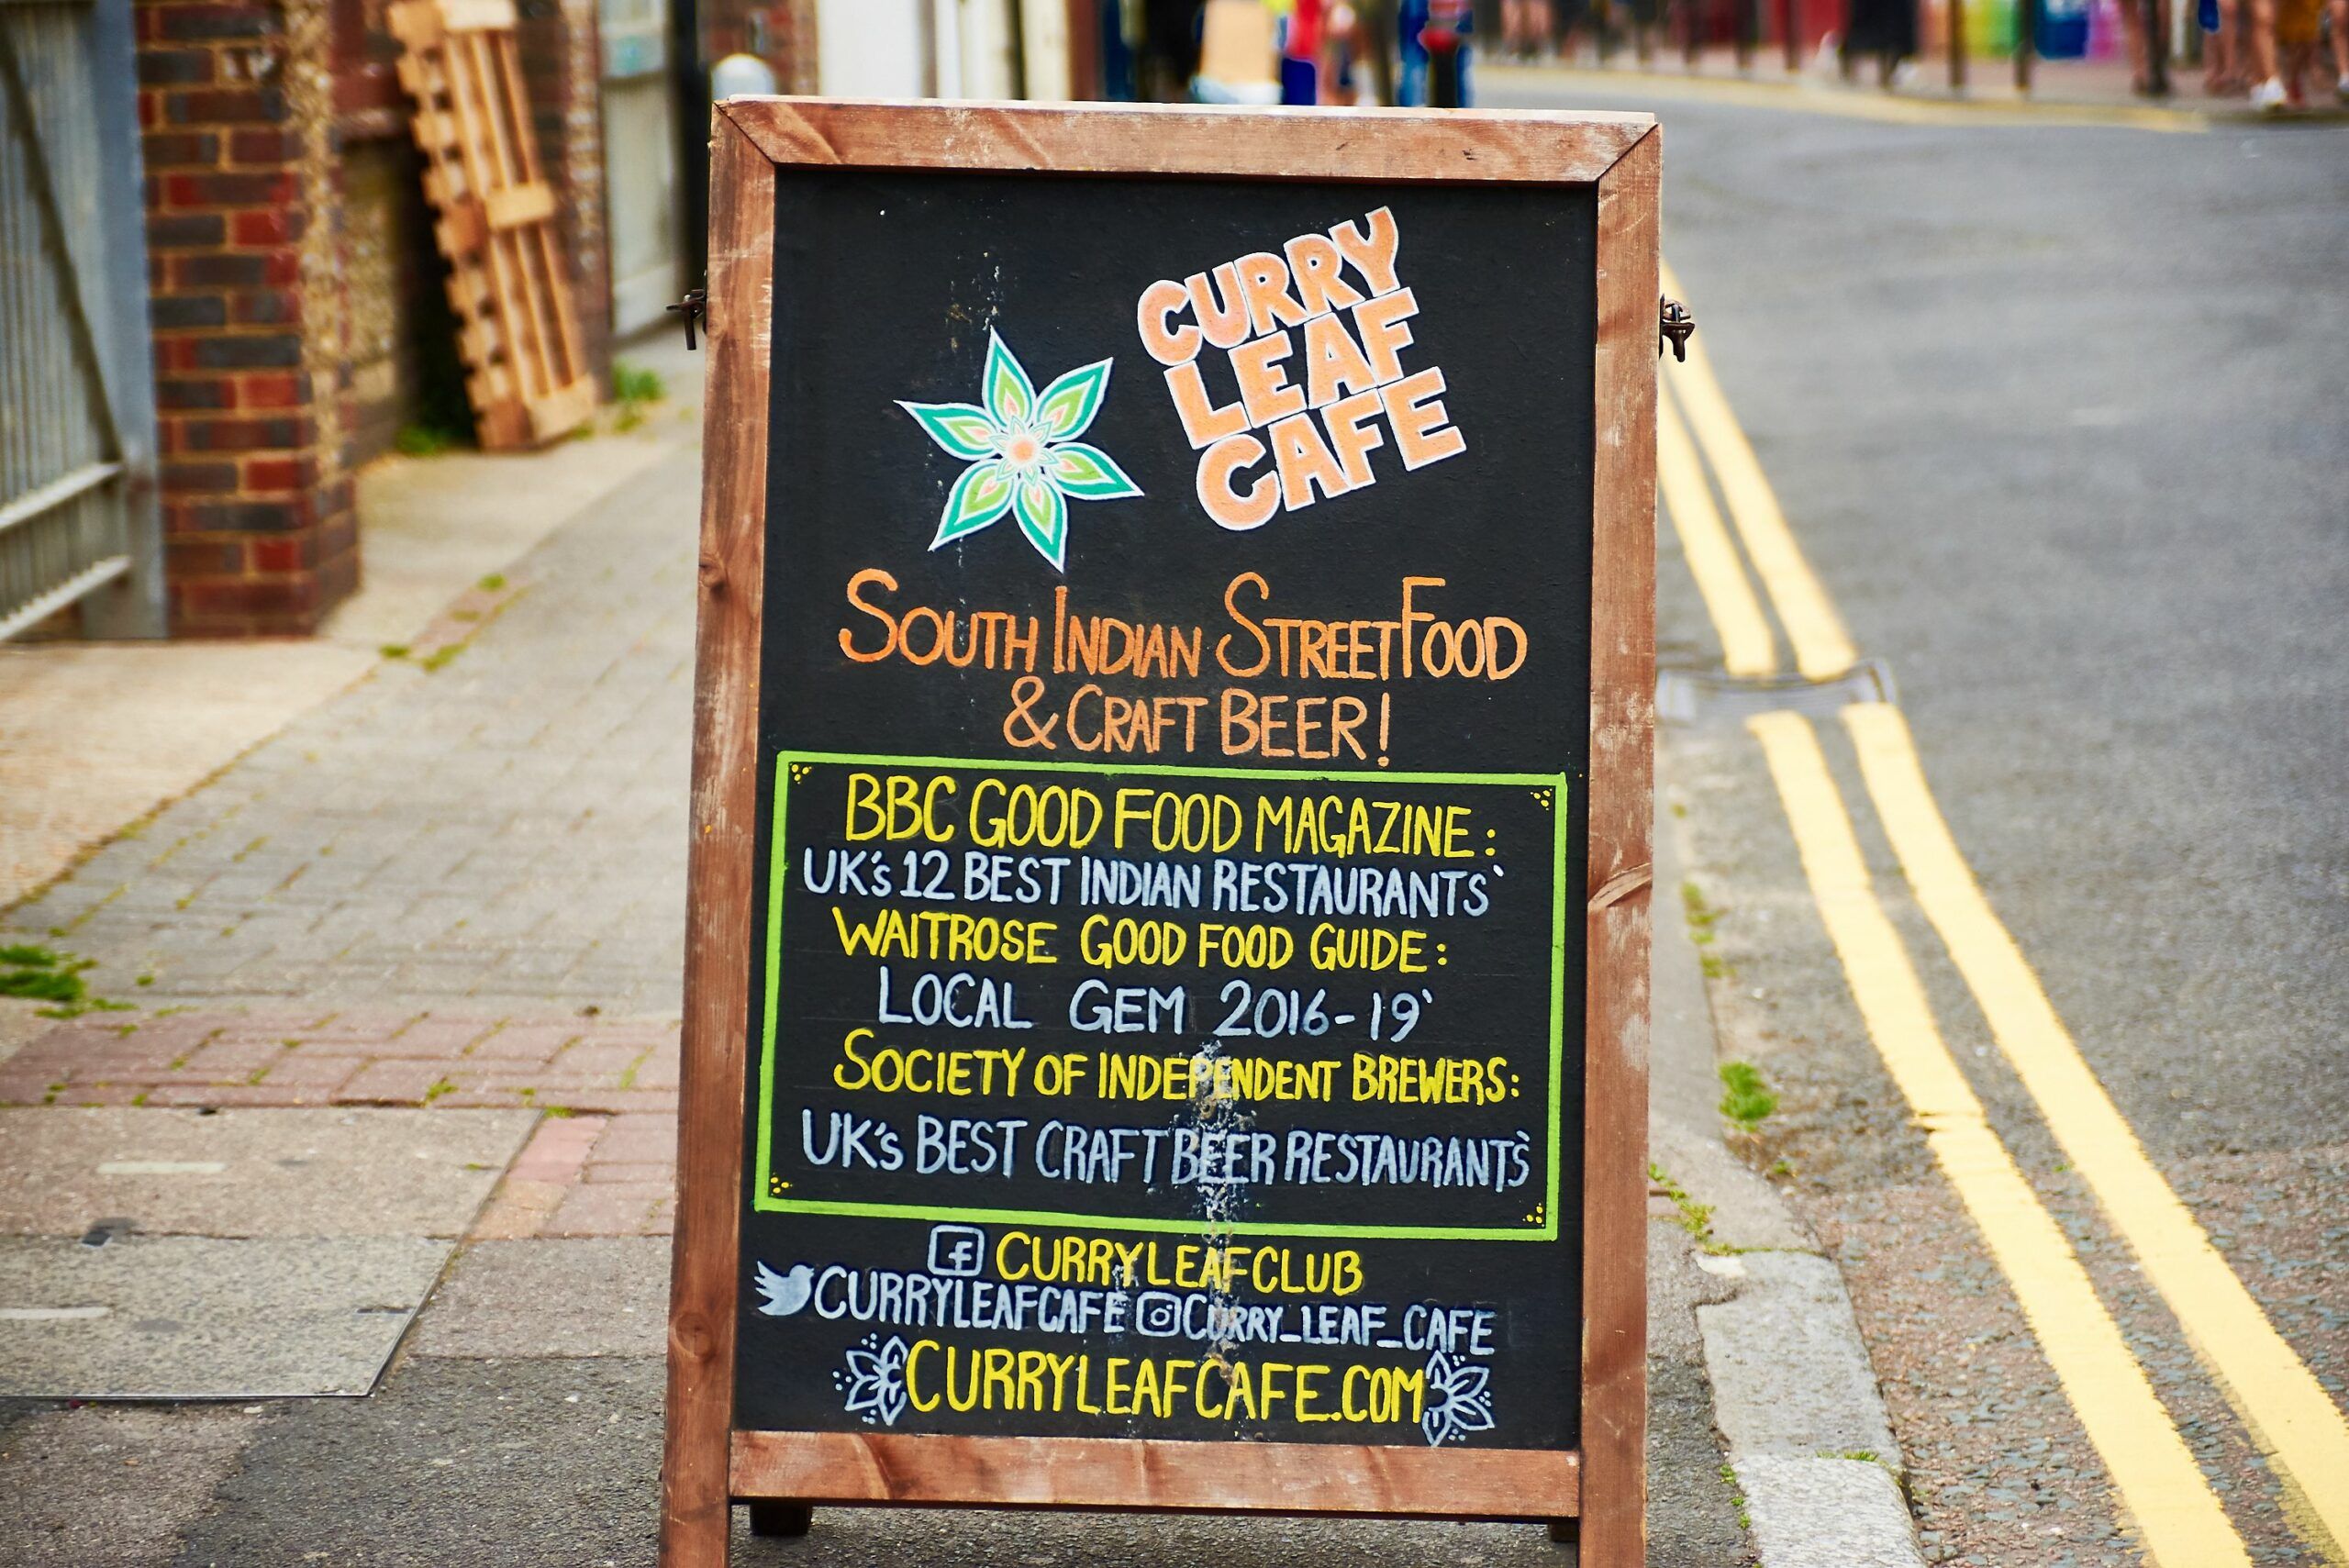 CURRY
LEAF
CAFE
SOUTH INDIAN STREET FOOD
& CRAFT BEER!
BBC GOOD FOOD MAGAZINE:
UK's 12 BEST INDIAN RESTAURANTS'
WAITROSE GOOD FOOD GUIDE:
LOCAL GEM 2016-19'
SOCIETY OF INDEPENDENT BREWERS:
UK's BEST CRAFT BEER RESTAURANTS'
CURRYLEAFCLUB
CURRYLEAFCAFE CURRY_LEAF_CAFE
CURRYLEAFCAFE.COM